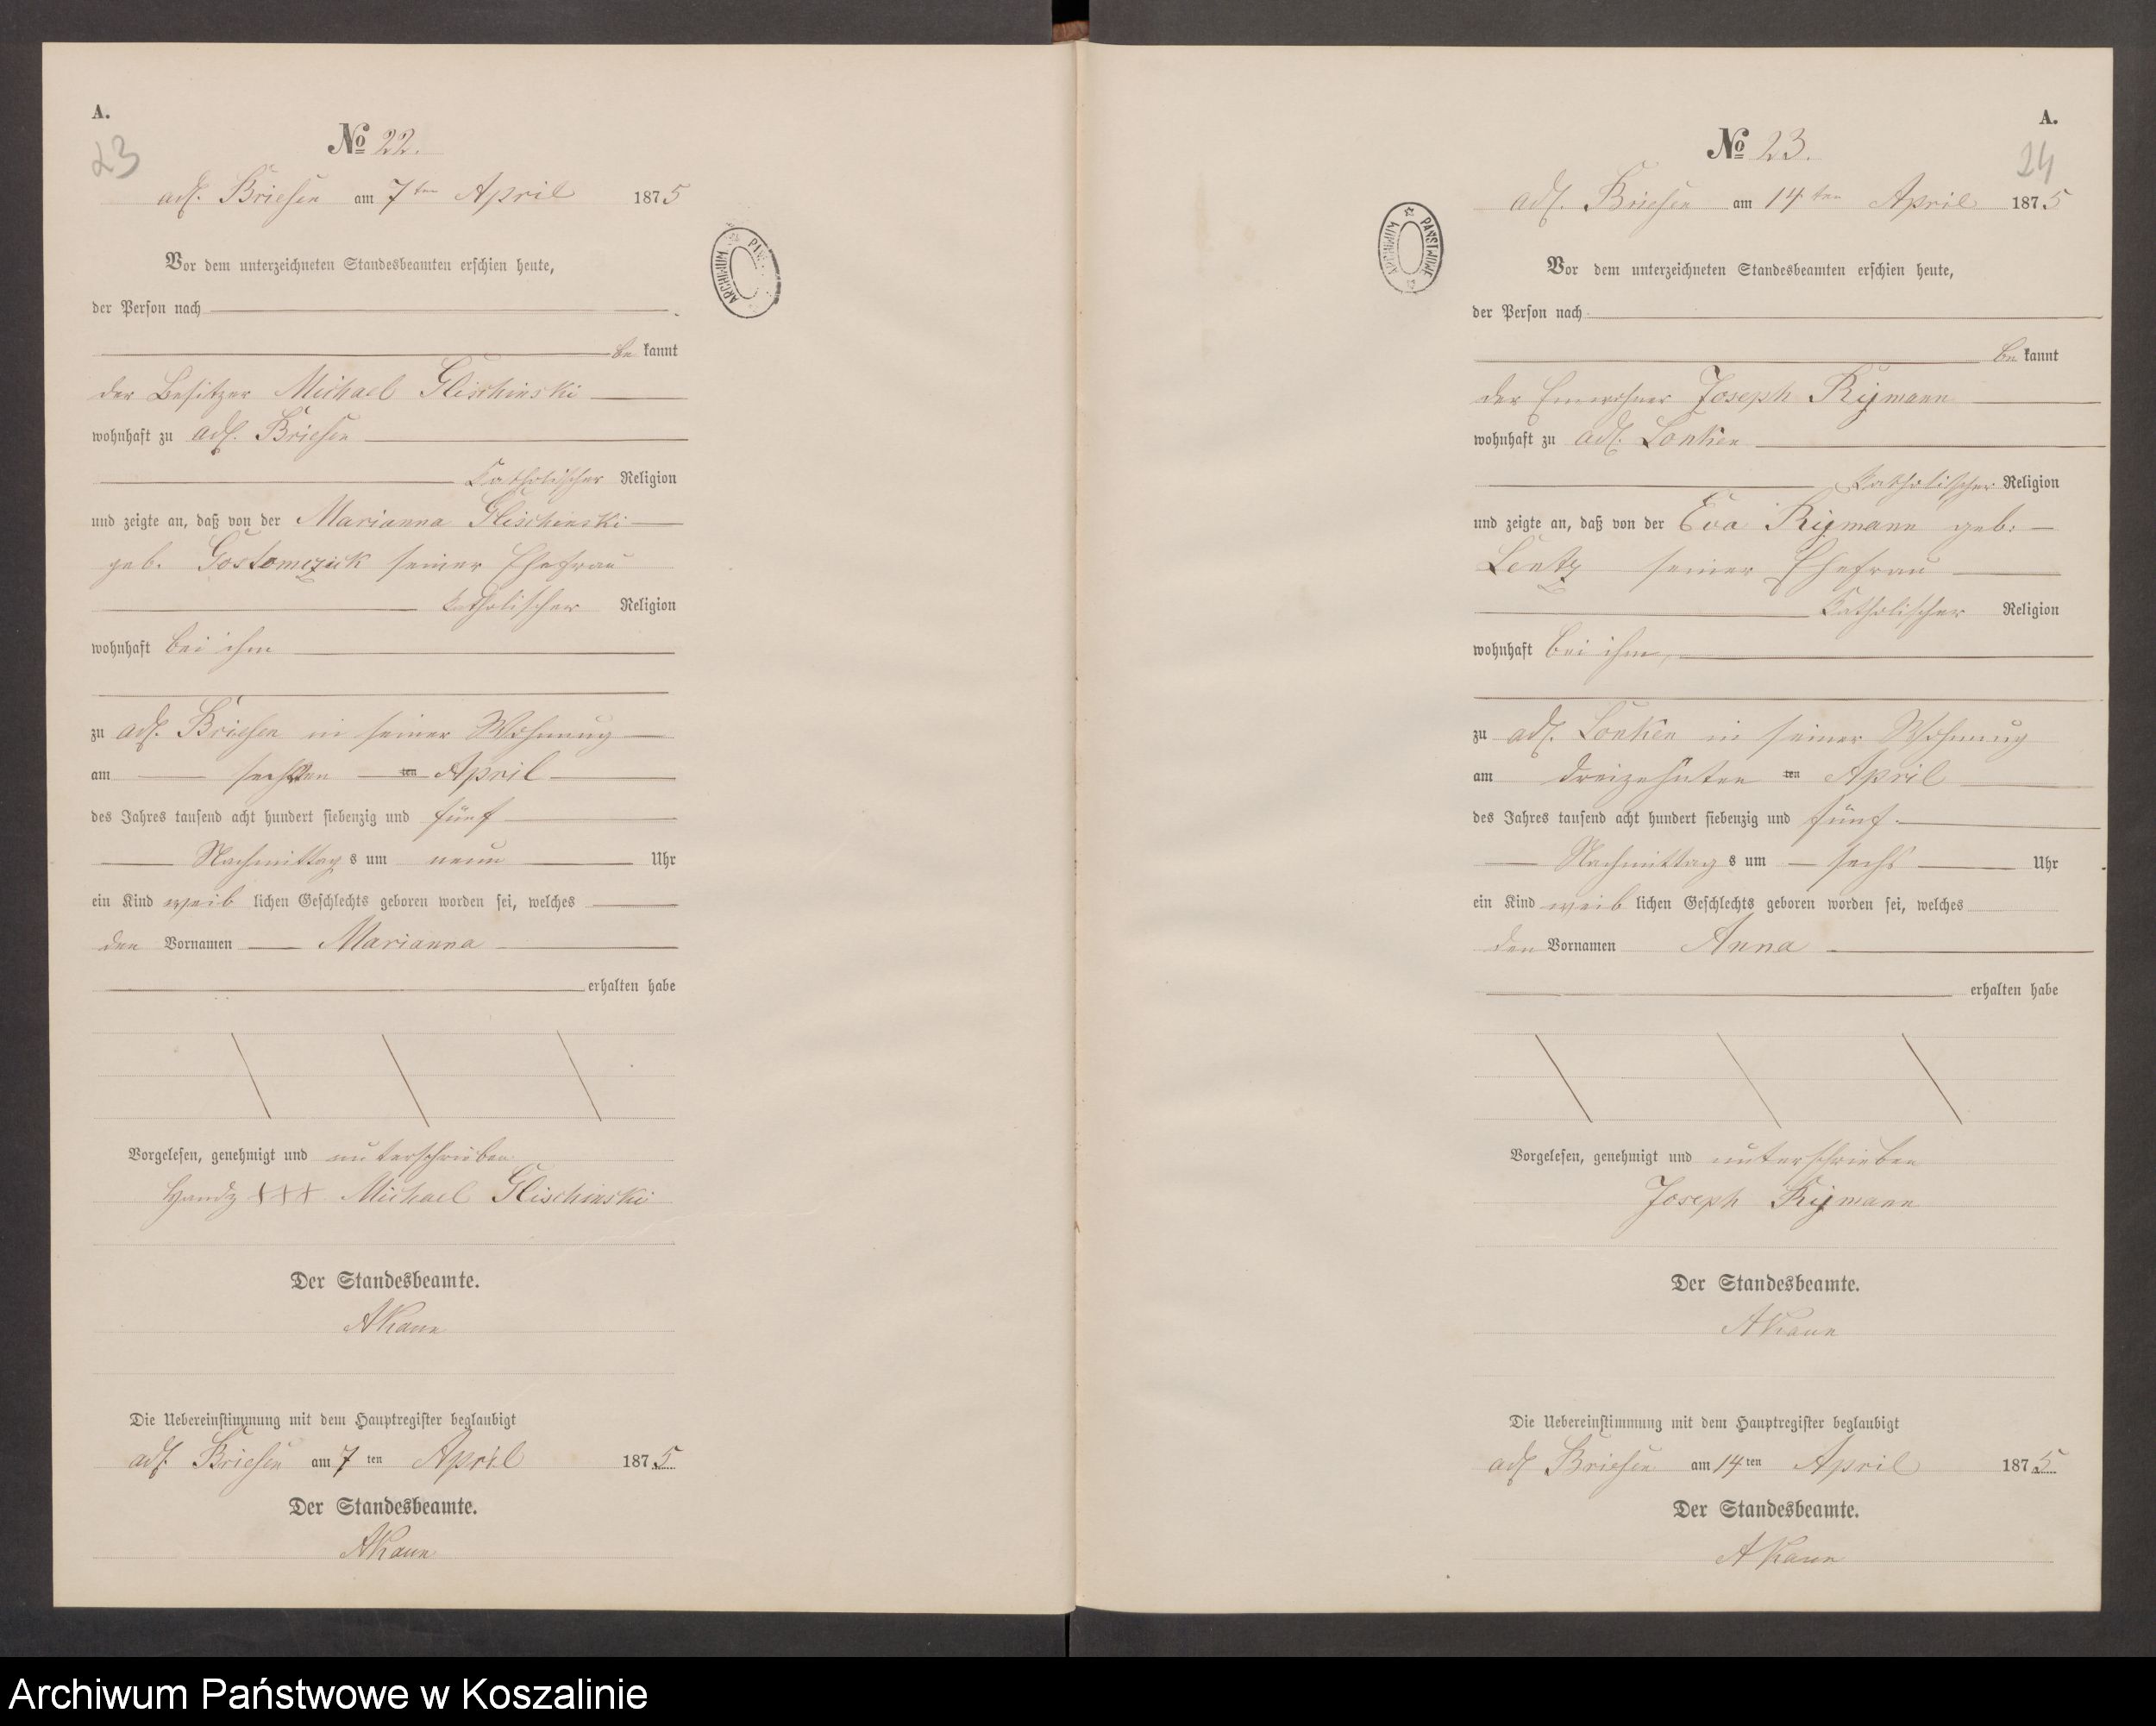 A.
23
№ 22.
adl. Briesen am 7ten April 1875
Vor dem unterzeichneten Standesbeamten erschien heute,
der Person nach
be kannt
der Besitzer Michael Glischinski
wohnhaft zu adl. Briesen
katholischer Religion
und zeigte an, daß von der Marianna Glischinski
geb. Gostomczick seiner Ehefrau
katholischer Religion
wohnhaft bei ihm
zu adl. Briesen in seiner Wohnung
am sechsten ten April
des Jahres tausend acht hundert siebenzig und fünf
Nachmittag s um neun Uhr
ein Kind weib lichen Geschlechts geboren worden sei, welches
den Vornamen Marianna
erhalten habe
Vorgelesen, genehmigt und unterschrieben
Handz +++ Michael Glischinski
Der Standesbeamte.
AKaun
Die Uebereinstimmung mit dem Hauptregister beglaubigt
adl. Briesen am 7 ten April 1875.
Der Standesbeamte.
AKaun
ARCHIWUM PAŃ
A.
24
№ 23.
adl. Briesen am 14ten April 1875
ARCHIWUM PAŃSTWOWE
Vor dem unterzeichneten Standesbeamten erschien heute,
der Person nach
be kannt
der Einwohner Joseph Rijmann
wohnhaft zu adl. Lonken
katholischer Religion
und zeigte an, daß von der Eva Rijmann geb.
Lentz seiner Ehefrau
katholischer Religion
wohnhaft bei ihm,
zu adl. Lonken in seiner Wohnung
am dreizehnten ten April
des Jahres tausend acht hundert siebenzig und fünf.
Nachmittag s um sechs Uhr
ein Kind weib lichen Geschlechts geboren worden sei, welches
den Vornamen Anna
erhalten habe
Vorgelesen, genehmigt und unterschrieben
Joseph Rijmann
Der Standesbeamte.
AKaun
Die Uebereinstimmung mit dem Hauptregister beglaubigt
adl Briesen am 14ten April 1875.
Der Standesbeamte.
AKaun
Archiwum Państwowe w Koszalinie